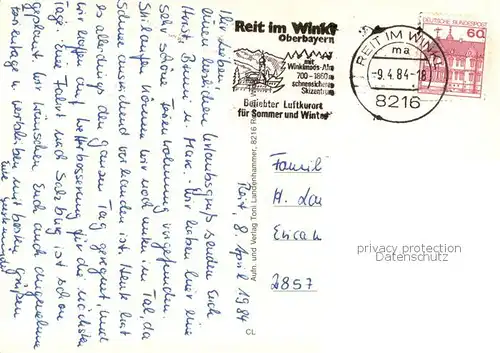 Reit im Winkl
Oberbayern
mit
Winklmoos-Alm
700-1860 m
schneesicheres
Skizentrum
Beliebter Luftkurort
für Sommer und Winter
REIT IM WINKL
ma
-9.4.84-18
8216
DEUTSCHE BUNDESPOST
60
Reit, 8. April 1984
Ihr Lieben!
Einen herzlichen Urlaubsgruß senden Euch
Horst, u. Marc. Wir haben hier eine
sehr schöne Ferienwohnung vorgefunden.
Skilaufen können wir noch unten im Tal, da
Schnee ausreichend vorhanden ist. Heute hat
es allerdings den ganzen Tag geregnet, und
wir hoffen auf Wetterbesserung für die nächsten
Tage. Eine Fahrt nach Salzburg ist schon
geplant. Wir wünschen Euch auch angenehme
und verbleiben mit besten Grüßen
Eure
Aufn. und Verlag Toni Landenhammer, 8216 Reit im
CL
Famil
H.
2857
privacy protection
Datenschutz